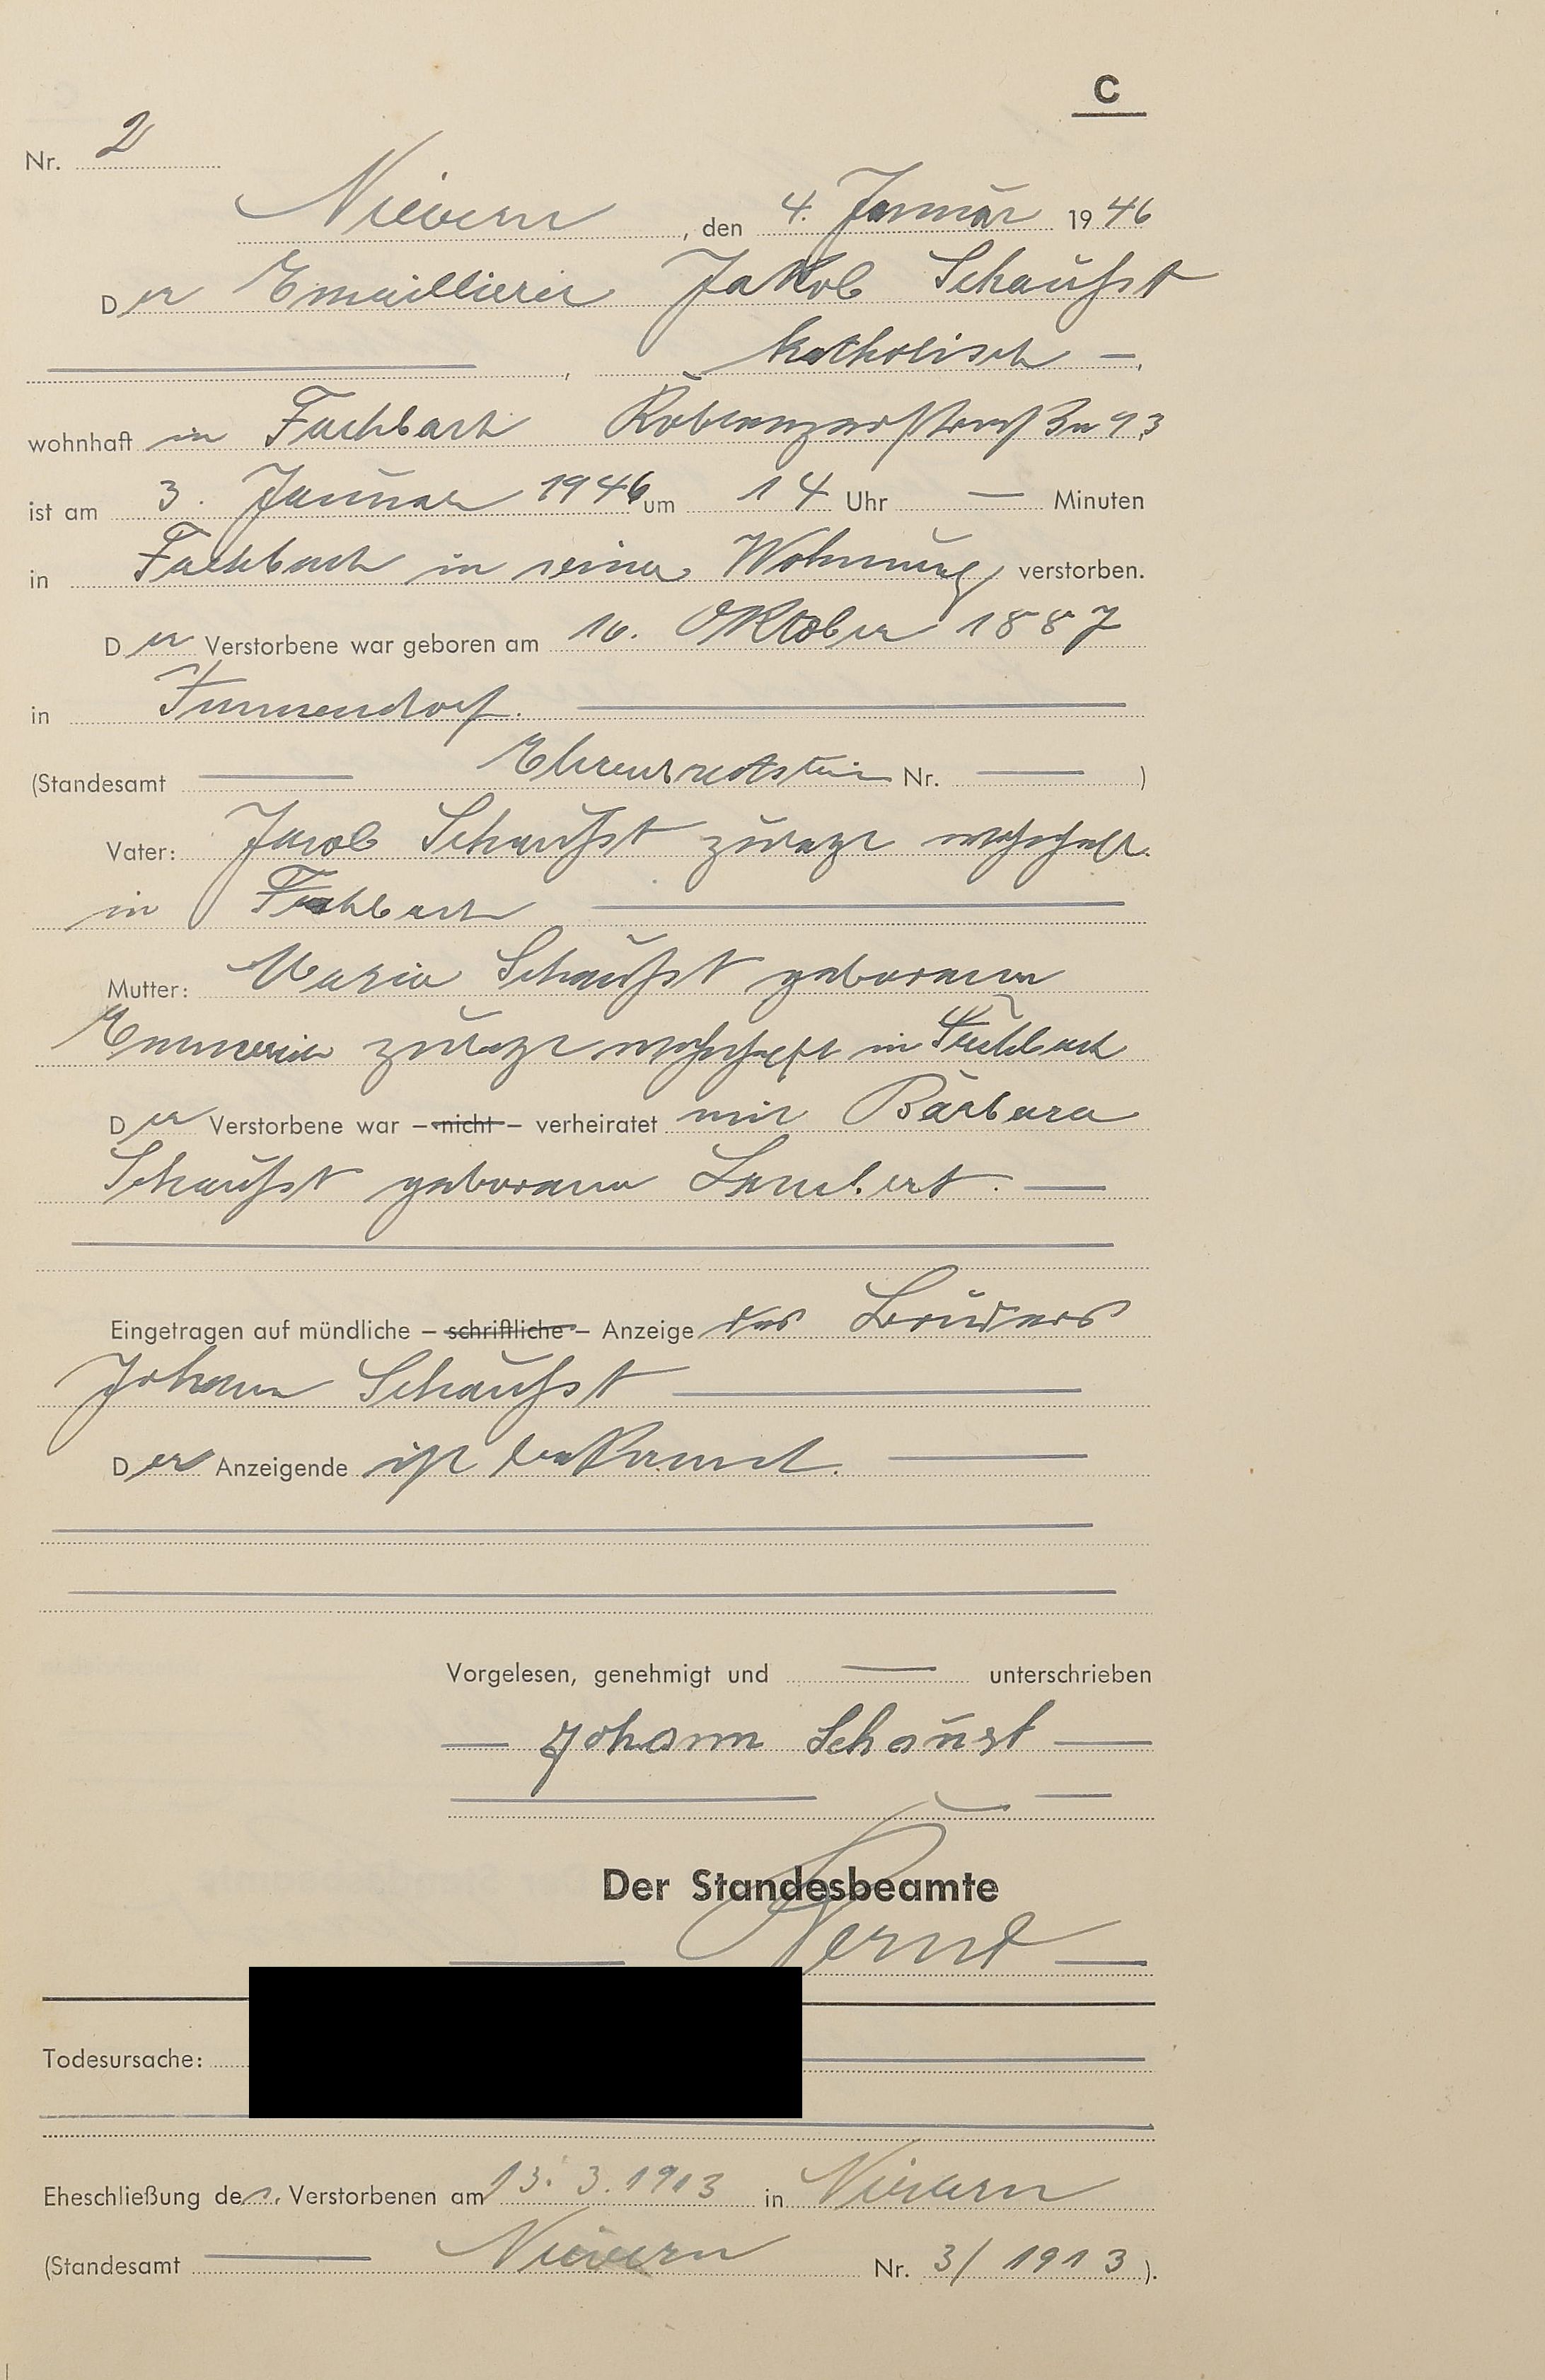 C
Nr. 2
Nievern, den 4. Januar 1946
Der Emaillierer Jakob Schaußt
katholisch
wohnhaft in Fachbach Koblenzerstraße 93
ist am 3. Januar 1946 um 14 Uhr — Minuten
in Fachbach in seiner Wohnung verstorben.
Der Verstorbene war geboren am 10. Oktober 1887
in Immendorf.
(Standesamt — Ehrenbreitstein Nr. — )
Vater: Jacob Schaußt zuletzt wohnhaft
in Fachbach
Mutter: Maria Schaußt geborene
zuletzt wohnhaft in Fachbach
Der Verstorbene war – nicht – verheiratet mit Barbara
Schaußt geborene Lambert.
Eingetragen auf mündliche – schriftliche – Anzeige des Bruders
Johann Schaußt
Der Anzeigende ist bekannt.
Vorgelesen, genehmigt und — unterschrieben
Johann Schaust
Der Standesbeamte
Todesursache:
Eheschließung des Verstorbenen am 13. 3. 1913 in Nievern
(Standesamt — Nievern Nr. 3/1913).